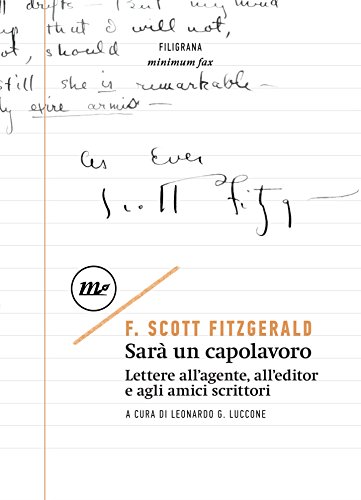 drifts — But my mind
up that I will not,
not, should
FILIGRANA
minimum fax
still she is remarkable —
As Ever
Scott Fitzg
mf
F. SCOTT FITZGERALD
Sarà un capolavoro
Lettere all'agente, all'editor
e agli amici scrittori
A CURA DI LEONARDO G. LUCCONE